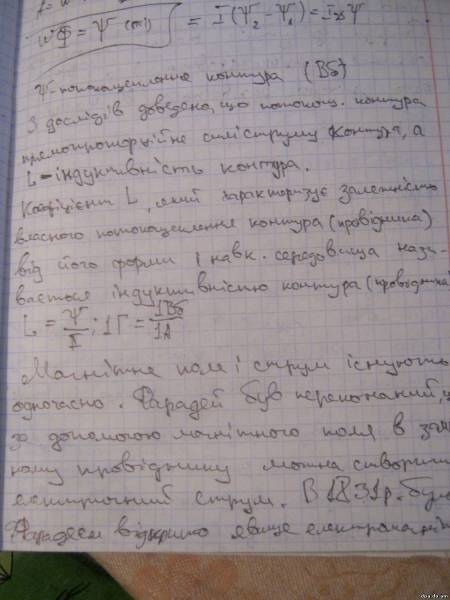 wФ = Ψ (пт) = I(Ψ₂ − Ψ₁) = I Ψ
Ψ-потокощеплення контура (Вб)
З дослідів доведено, що потокощ. контура
прямопропорційне силі струму контура, а
L - індуктивність контура.
Коефіцієнт L, який характеризує залежність
власного потокощеплення контура (провідника)
від його форми і навк. середовища нази-
вається індуктивністю контура (провідника)
L = Ψ/I ; 1Г = 1Вб/1А
Магнітне поле і струм існують
одночасно. Фарадей був переконаний, щ
за допомогою магнітного поля в
ному провіднику можна створити
електричний струм. В 1831р. бул
Фарадеєм відкрито явище електромагніт
dpa.do.am